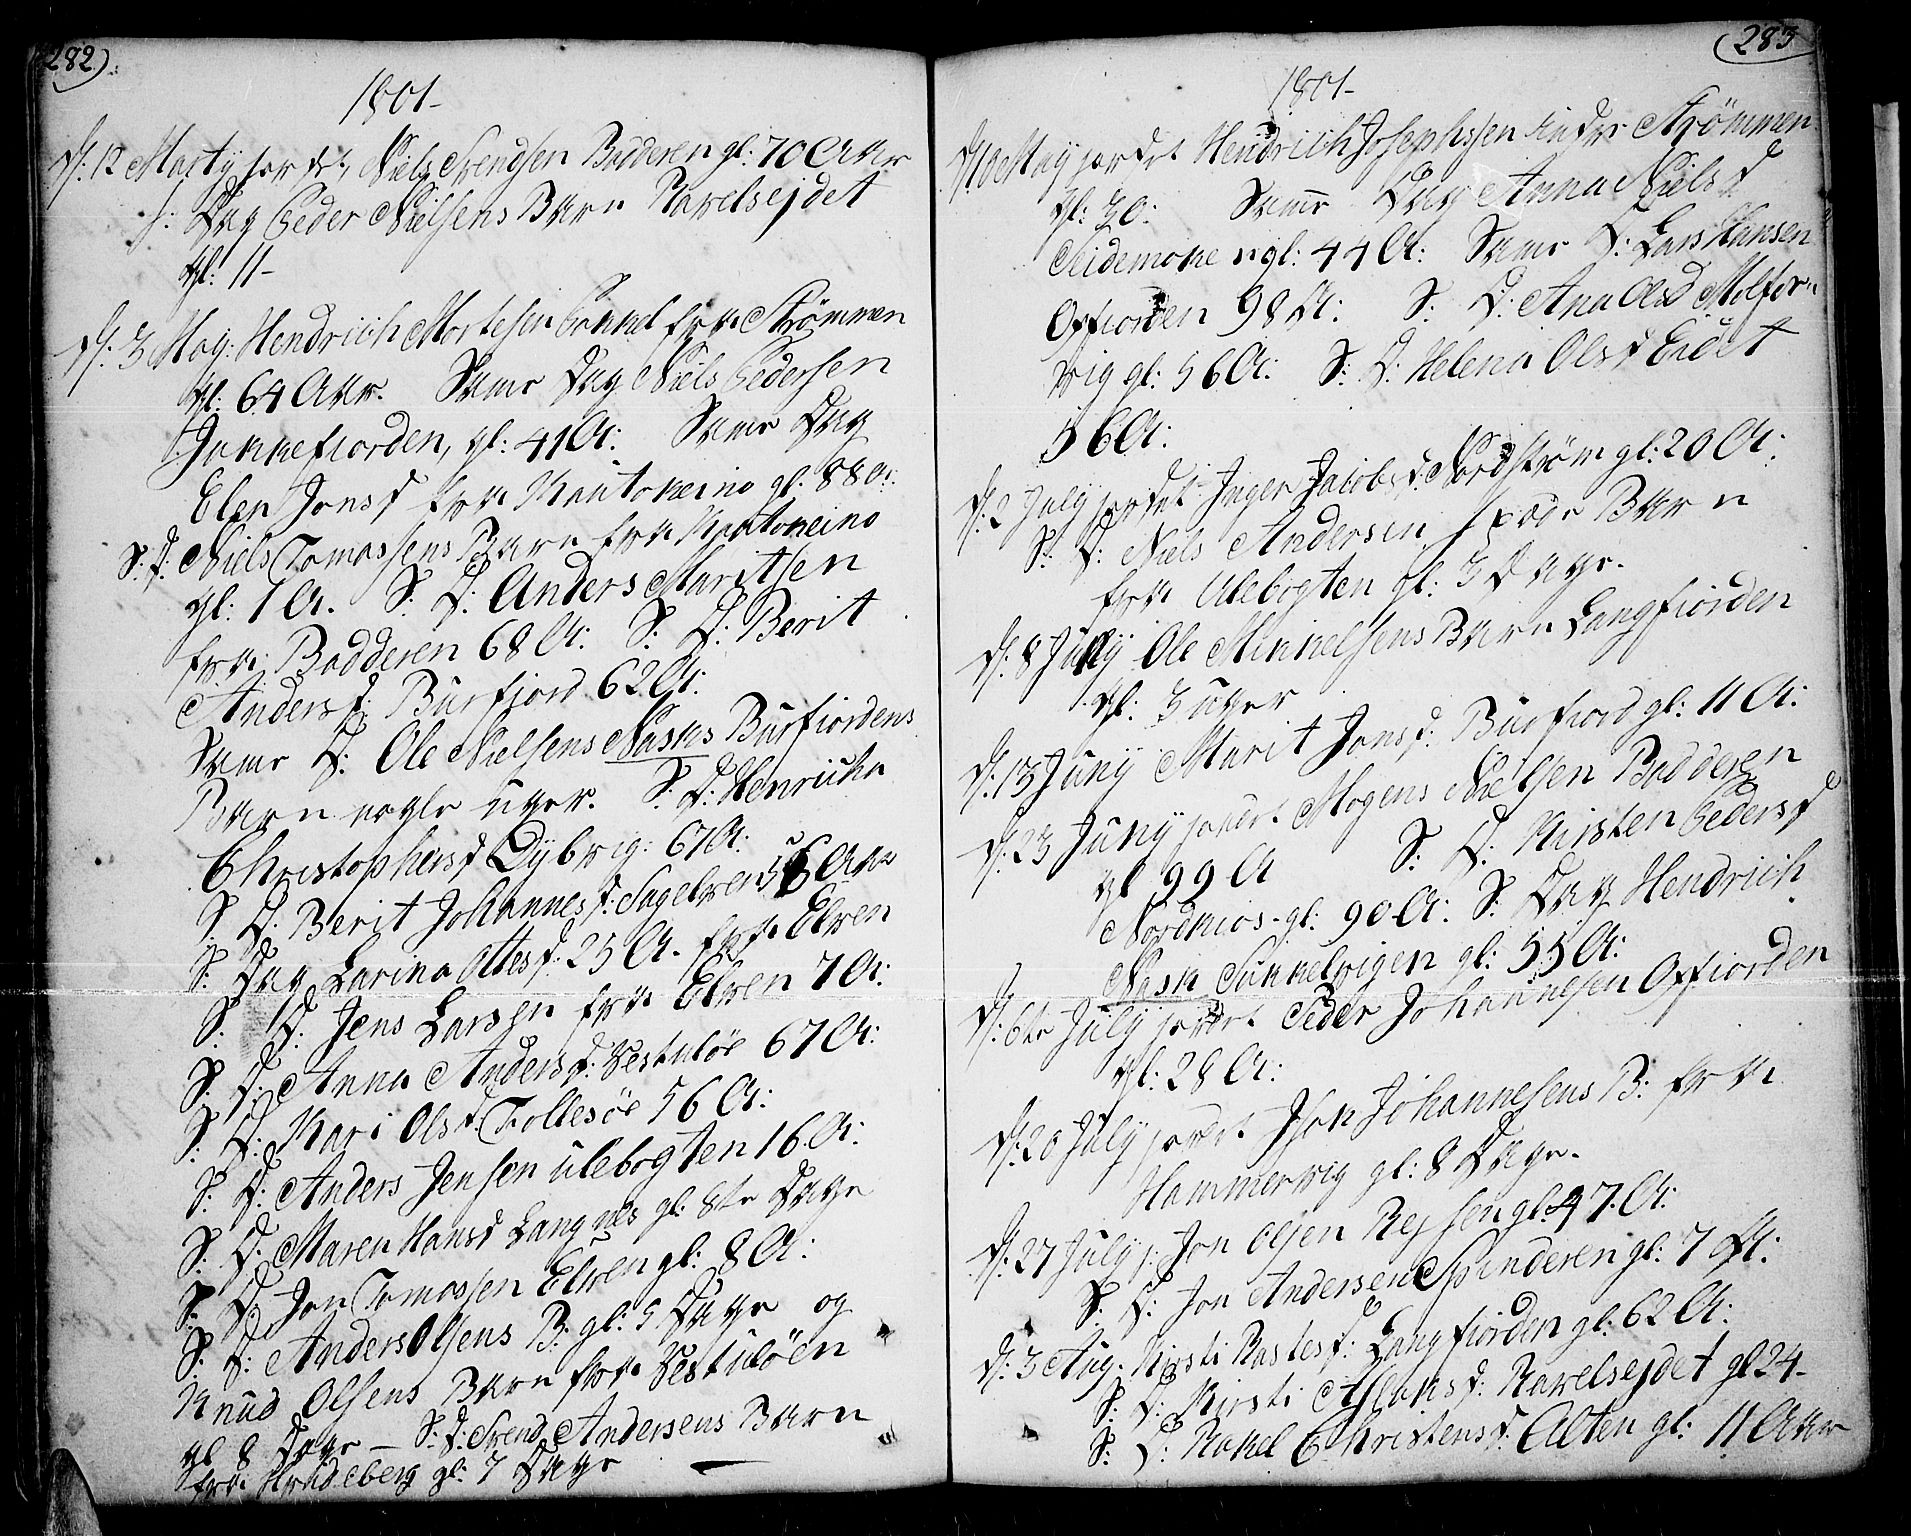 282
1801-
D: 12 Martÿ jordet, Niels Svendsen Badderen gl: 70 Aar
S: Dag Peder Nielsens Barn Kavelsejdet
gl: 11-
D: 3 Maÿ: Hendrich Mortesen fra Strömmen
gl: 64 Aar. Same Dag Niels Pedersen
Jokkefiorden, gl: 41 A: Same Dag
Elen Jonsd fra Koutokeino gl: 88 a:
S: D: Niels Tomassens Barn fra Koutokeino
gl: 1 A. S: D: Anders Maritsen
fra: Badderen 68 A: S: D: Berit
Andersd: Burfjord 62 A:
Same D: Ole Nielsens Nasks Burfiordens
Barn nogle uger. S: D: Henricha
Christophersd Dybvig: 67 A:
S: D: Berit Johannesd: Sagelven 56 Aar
S: Dag Larina Ottesd: 25 A. fra Elven
S: D: Jens Larsen fra Elven 7 A:
S: D: Anna Andersd: Vestnlöe 67 A:
S: D: Kari Olsd. Follesöe 56 A:
S: D: Anders Jensen ulebogten 16 A:
S: D: Maren Hansd Langnes gl: 8te Dage
S: D: Jon Tomassen Elven gl: 8 A:
S: D: Anders Olsens B: gl: 5 Dage og
Knud Olsens Barn fra Vestulöen
gl 8 Dage — S: D: Svend Andersens Barn
fra gl: 7 Dage
283
1801-
D: 10 Maÿ jordet Hendrich Josephssen Strömmen
gl: 30: Same Dag Anna Nielsd
gl: 44 A: Same D: Lars Hansen
Oxfiorden 98 A: S: D: Ana Olsd Molfor-
vig gl: 56 A: S: D: Helena Olsd Eidet
56 A:
D: 2 July jordet Inger Jacobsd. Nordström gl: 20 A:
S: D: Niels Andersen spæde Barn
fra Ulebogten gl: 3 Dage.
D: 8 July Ole Mikkelsens Barn Langfiorden
gl: 3 uger
D: 13 Junÿ Marit Jonsd: Burfiord gl: 11 A:
D: 23 Junÿ jordet Mogens Nielsen Badderen
gl 99 A S: D: Kirsten Pedersd
Nordkios- gl: 90 A: S: Dag Hendrich
Nask Sukkelvigen gl: 55 A:
D: 6te Julÿ jordet Peder Johannesen Oxfiorden
gl: 28 A:
D: 20 Julÿ jordet Johannesens B: fra
Hammervig gl: 8 Dage.
D: 27 Julÿ j: Jon Olsen Rejsen gl: 47. A:
S: D: Jon Andersen Spinderen gl: 7 A:
D: 3 Aug. Kirsti Rastesd: Langfiorden gl: 62 A:
S: D: Kirsti Aslaksd: Kavelsejdet gl 24-
S: D: Rakel Christensd: Alten gl: 11 Aar